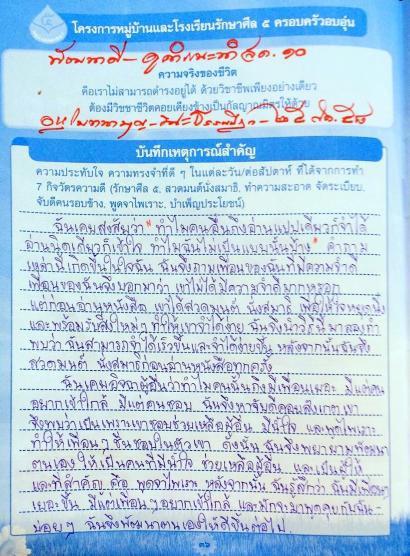 โครงการหมู่บ้านและโรงเรียนรักษาศีล ๕ ครอบครัวอบอุ่น
ความจริงของชีวิต
คือเราไม่สามารถดำรงอยู่ได้ ด้วยวิชาชีพเพียงอย่างเดียว
ต้องมีวิชชาชีวิตคอยเคียงข้างเป็นกัลญาณมิตรให้ด้วย
บันทึกเหตุการณ์สำคัญ
ความประทับใจ ความทรงจำที่ดี ๆ ในแต่ละวัน/ต่อสัปดาห์ ที่ได้จากการทำ
7 กิจวัตรความดี (รักษาศีล ๕, สวดมนต์นั่งสมาธิ, ทำความสะอาด จัดระเบียบ,
จับดีคนรอบข้าง, พูดจาไพเราะ, บำเพ็ญประโยชน์)
ฉันเคยสงสัยว่า "ทำไมคนอื่นถึงอ่านแปบเดียวก็จำได้
อ่านนิดเดียวก็เข้าใจ ทำไมฉันไม่เป็นแบบนั้นบ้าง" คำถาม
เหล่านี้เกิดขึ้นในใจฉัน ฉันจึงถามเพื่อนของฉันที่มีความจำดี
เพื่อนของฉันจึงบอกมาว่า เขาไม่ได้มีความจำดีมากหรอก
แต่ก่อนอ่านหนังสือ เขาได้สวดมนต์ นั่งสมาธิ เพื่อให้ใจหยุดนิ่ง
และพร้อมรับสิ่งใหม่ๆ ทำให้เขาจำได้ง่าย ฉันจึงนำวิธีนี้มาลองทำ
พบว่า ฉันสามารถจำได้เร็วขึ้นและจำได้ง่ายขึ้น หลังจากนั้นฉันจึง
สวดมนต์ นั่งสมาธิก่อนอ่านหนังสือทุกครั้ง
ฉันเคยอิจฉาผู้อื่นว่าทำไมคนนั้นถึงมีเพื่อนเยอะ มีแต่คน
อยากเข้าใกล้ มีแต่คนชอบ ฉันจึงหาจับดีคอยสังเกตเขา
จึงพบว่าเป็นเพราะเขาชอบช่วยเหลือผู้อื่น มีน้ำใจ และพูดไพเราะ
ทำให้เพื่อนๆ ชื่นชอบในตัวเขา ดังนั้น ฉันจึงพยายามพัฒนา
ตนเองให้เป็นคนที่มีน้ำใจ ช่วยเหลือผู้อื่น และเป็นผู้ให้
และที่สำคัญ คือ พูดจาไพเราะ หลังจากนั้น ฉันรู้สึกว่า ฉันมีเพื่อนๆ
เยอะขึ้น มีแต่เพื่อนๆอยากเข้าใกล้ และมักจะมาพูดคุยกับฉัน
บ่อยๆ ฉันจึงพัฒนาตนเองให้ดีขึ้นต่อไป
๓๖